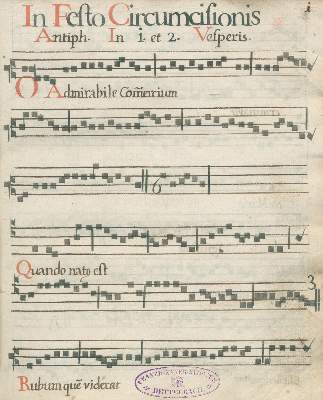 In Festo Circumcisionis
i
Antiph. In 1. et 2. Vesperis.
O Admirabile Com̄ercium
6
Quando nat9 est
3
Rubum quē viderat